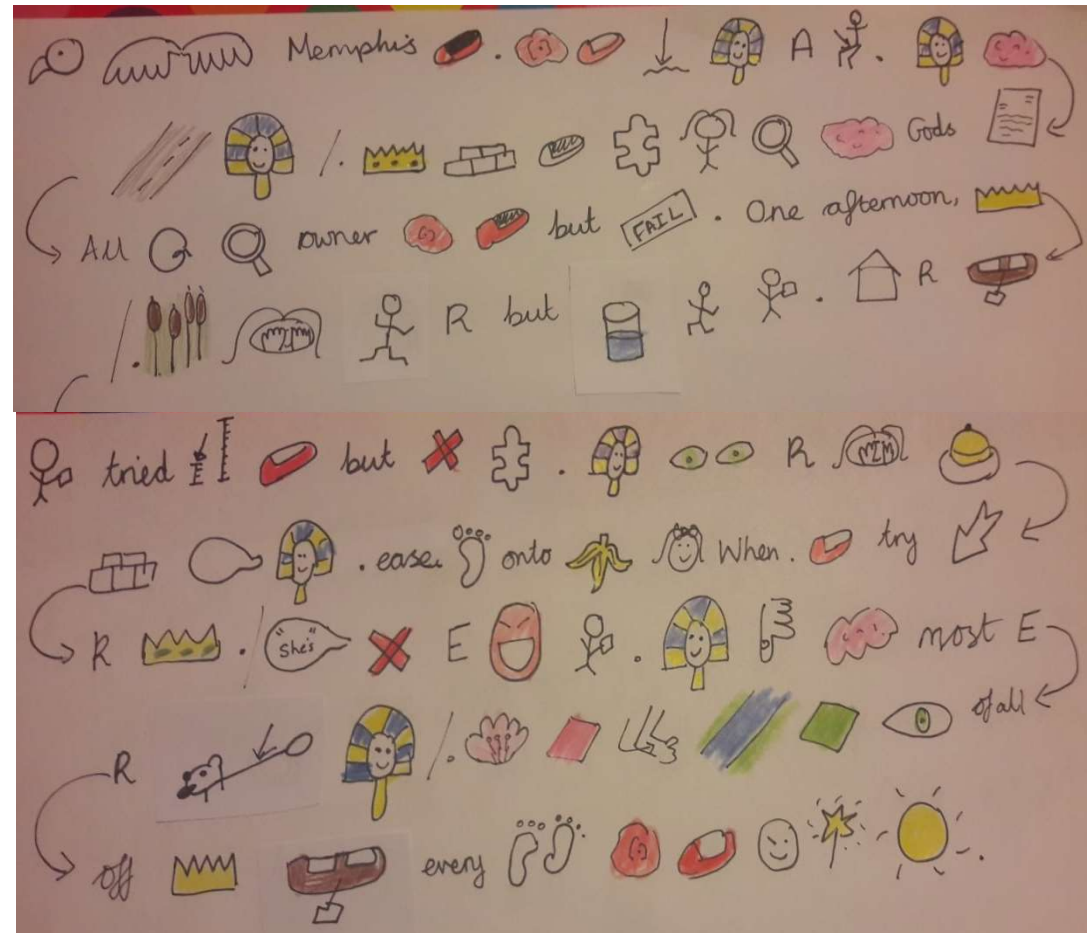 Memphis . A .
/. Gods
All owner but FAIL . One afternoon,
/. R but . R
tried but . R
. ease onto When . try
R . / "She's" E . most E
R / . of all
off every .